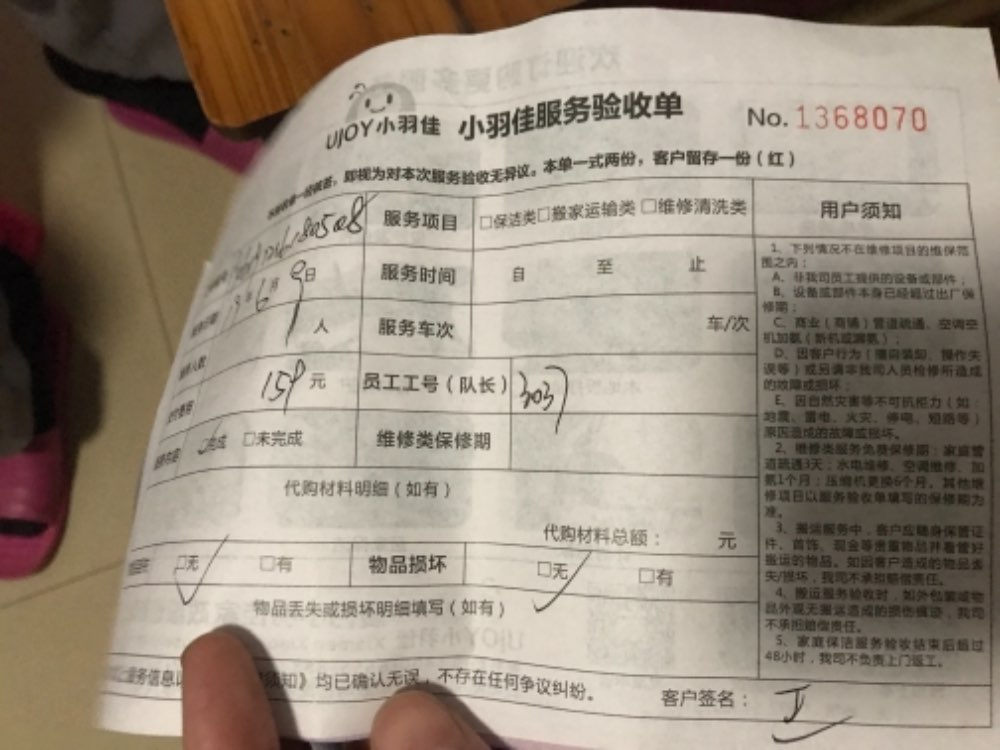 UJOY小羽佳 小羽佳服务验收单 No. 1368070
即视为对本次服务验收无异议。本单一式两份，客户留存一份（红）
服务项目 □保洁类□搬家运输类 □维修清洗类 用户须知
年6月9日 服务时间 自 至 止
人 服务车次 车/次
159元 员工工号（队长） 3037
□完成 □未完成 维修类保修期
代购材料明细（如有）
代购材料总额： 元
□无 □有 物品损坏 □无 □有
物品丢失或损坏明细填写（如有）
均已确认无误，不存在任何争议纠纷。
客户签名：
1、下列情况不在维修项目的维保范
围之内：
A、非我司员工提供的设备或部件；
B、设备或部件本身已经超过出厂保
修期；
C、商业（商铺）管道疏通、空调空
机加氨（新机或漏氨）；
D、因客户行为（擅自装卸、操作失
误等）或另请非我司人员检修所造成
的故障或损坏；
E、因自然灾害等不可抗拒力（如：
地震、雷电、火灾、停电、短路等）
原因造成的故障或损坏。
2、维修类服务免费保修期：家庭管
道疏通3天；水电维修、空调维修、加
氨1个月；压缩机更换6个月。其他维
修项目以服务验收单填写的保修期为
准。
3、搬运服务中，客户应随身保管证
件、首饰、现金等贵重物品并看管好
搬运的物品。如因客户造成的物品丢
失/损坏，我司不承担赔偿责任。
4、搬运服务验收时，如外包装或物
品外观无搬运造成的损伤痕迹，我司
不承担赔偿责任。
5、家庭保洁服务验收结束后超过
48小时，我司不负责上门返工。